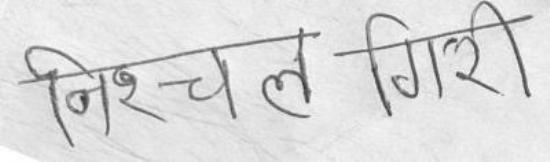 निश्चल गिरी